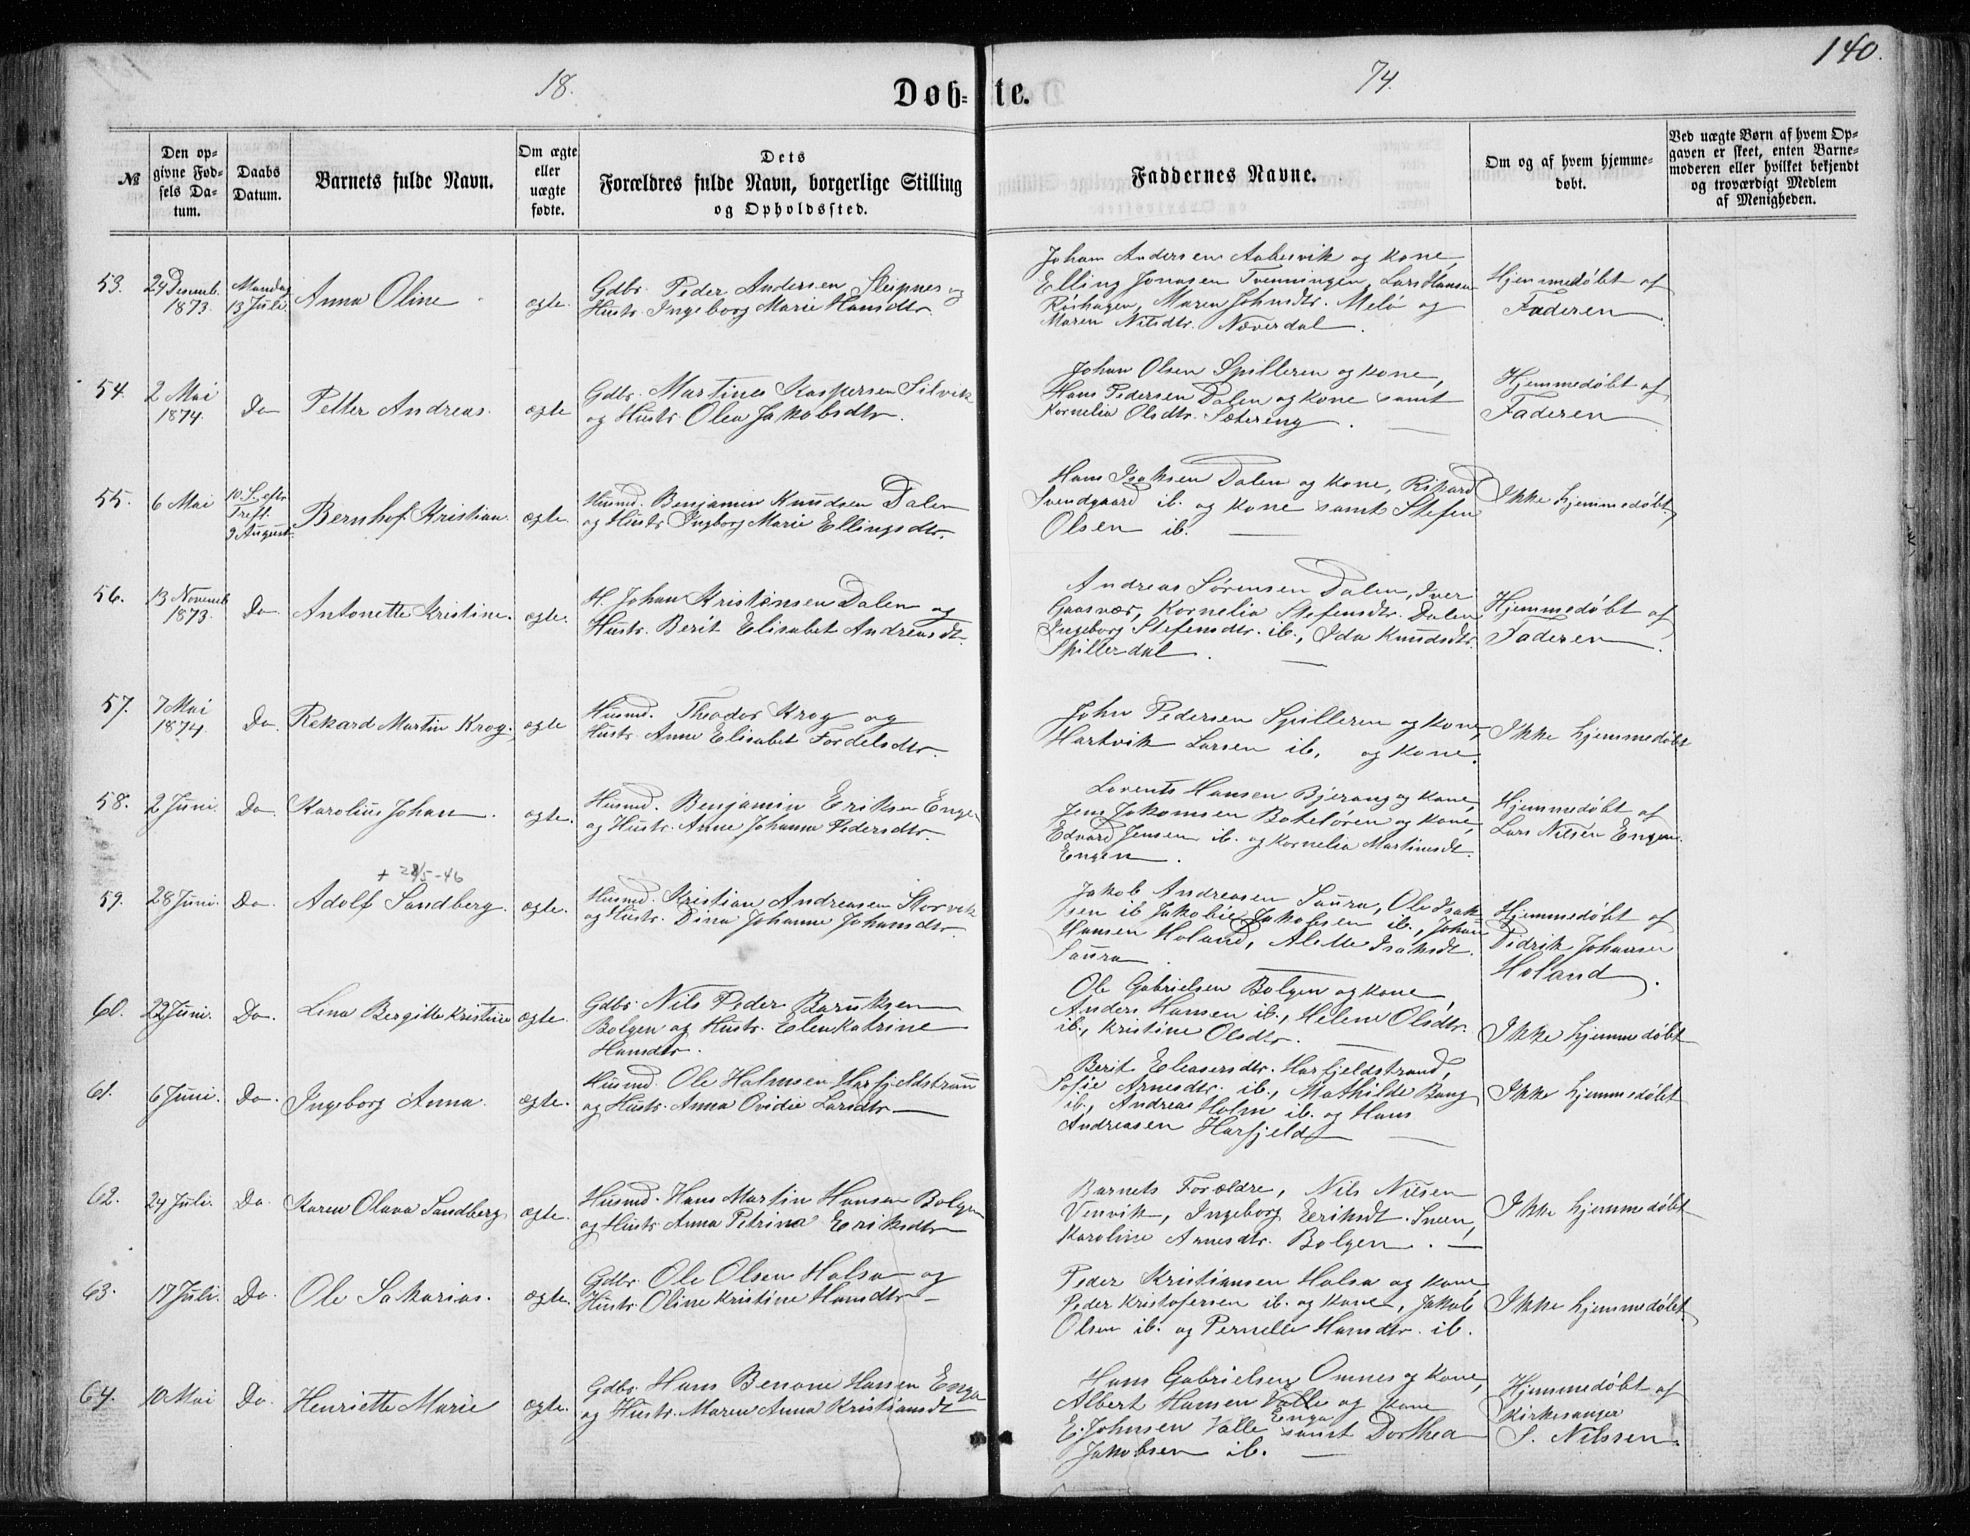 140.
18. Døb=te. 74.
№
Den op=
givne Fød=
sels Da=
tum.
Daabs
Datum.
Barnets fulde Navn.
Om ægte
eller
uægte
fødte.
Dets
Forældres fulde Navn, borgerlige Stilling
og Opholdssted.
Faddernes Navne.
Om og af hvem hjemme=
døbt.
Ved uægte Børn af hvem Op=
gaven er skeet, enten Barne=
moderen eller hvilket bekjendt
og troværdigt Medlem
af Menigheden.
53.
29 Decemb.
1873.
Mandag
13 Juli.
Anna Oline
ægte.
Gdbr. Peder Andersen Sleipnes og
Hustr. Ingeborg Marie Hansdtr.
Johan Andersen Aabesvik og Kone,
Elling Jonasen Tvenningen, Lars Hansen
Røshagen, Maren Johnsdtr. Melø og
Maren Nilsdtr. Næverdal.
Hjemmedøbt af
Faderen
54.
2 Mai
1874.
Do
Petter Andreas.
ægte
Gdbr. Martines Kaspersen Silvik
og Hustr. Olea Jakobsdtr.
Johan Olsen Spilleren og Kone,
Hans Pedersen Dalen og Kone samt
Kornelia Olsdtr. Sætereng.
Hjemmedøbt af
Faderen
55.
6 Mai
10. S. eftr
Tref.
9 August
Bernhof Kristian
ægte.
Husmd. Benjamin Knudsen Dalen
og Hustr. Ingborg Marie Ellingsdtr.
Hans Isaksen Dalen og Kone, Rikard
Svendgaard ib. og Kone samt Stefen
Olsen ib.
Ikke hjemmedøbt
56.
13 Novemb
1873.
Do
Antonette Kristine.
ægte.
H. Johan Kristensen Dalen og
Hustr. Berit Elisabet Andreasdt.
Andreas Sørensen Dalen, Iver
Gaasvær, Kornelia Stefensdtr. Dalen
Ingeborg Stefensdtr. ib., Ida Knudsdtr.
Spillerdal.
Hjemmedøbt af
Faderen
57.
7 Mai
1874
Do.
Rekard Martin Krog.
ægte
Husmd. Theodor Krog og
Hustr. Anne Elisabet Fordelsdtr.
John Pedersen Spilleren og Kone,
Hartvik Larsen ib. og Kone.
Ikke hjemmedøbt
58.
2 Juni.
Do
Karolius Johan.
ægte.
Husmd. Benjamin Eriksen Engen
og Hustr. Anne Johanna Pedersdtr.
Lorents Hansen Bjerang og Kone,
Jens Jakobsen Boteløren og Kone,
Edvard Jensen ib. og Kornelia Martinusdt.
Engen.
Hjemmedøbt af
Lars Nilsen Engen.
59.
28 Juni.
Do.
+ 28/5-46
Adolf Sandberg.
ægte.
Husmd. Kristian Andreasen Storvik
og Hustr. Dina Johanna Johansdtr.
Jakob Andreasen Saura, Ole Isak=
sen ib. Jakobie Jakobsen ib., Johan
Hansen Holand, Alette Isaksdt.
Saura
Hjemmedøbt af
Didrik Johansen
Holand.
60.
22 Juni.
Do.
Lina Bergitte Kristine
ægte.
Gdbr. Nils Peder Baruksen
Bolgen og Hustr. Elen Katrine
Hansdtr.
Ole Gabrielsen Bolgen og Kone,
Anders Hansen ib., Helene Olsdtr.
ib., Kristine Olsdtr.
Ikke hjemmedøbt
61.
6 Juni.
Do.
Ingeborg Anna.
ægte.
Husmd. Ole Holmsen Harfjeldstran
og Hustr. Anna Ovidie Larsdtr.
Berit Eleasersdtr. Harfjeldstrand,
Sofie Arnesdtr. ib., Mathilde Bang
ib., Andreas Holm ib. og Hans
Andreasen Harfjeld
Ikke hjemmedøbt
62.
24 Juli.
Do.
Karen Olava Sandberg
ægte.
Husmd. Hans Martin Hansen Bolgen
og Hustr. Anna Petrina Eriksdtr
Barnets Forældre, Nils Nilsen
Venvik, Ingeborg Eriksdt. Sneen,
Karoline Arnesdtr. Bolgen.
Ikke hjemmedøbt
63.
17 Juli.
Do.
Ole Sakarias.
ægte.
Gdbr. Ole Olsen Halsa og
Hustr. Oline Kristine Hansdtr
Peder Kristiansen Halsa og Kone,
Peder Kristofersen ib. og Kone, Jakob
Olsen ib. og Pernelle Hansdtr. ib.
Ikke hjemmedøbt
64.
10 Mai
Do.
Henriette Marie
ægte.
Gdbr. Hans Benone Hansen Enga
og Hustr. Maren Anna Kristiansdt
Hans Gabrielsen Omnes og Kone,
Albert Hansen Valle og Kone
Enga
E. Johnsen Valle samt Dorthea
Jakobsen ib.
Hjemmedøbt af
Kirkesanger
S. Nilssen.